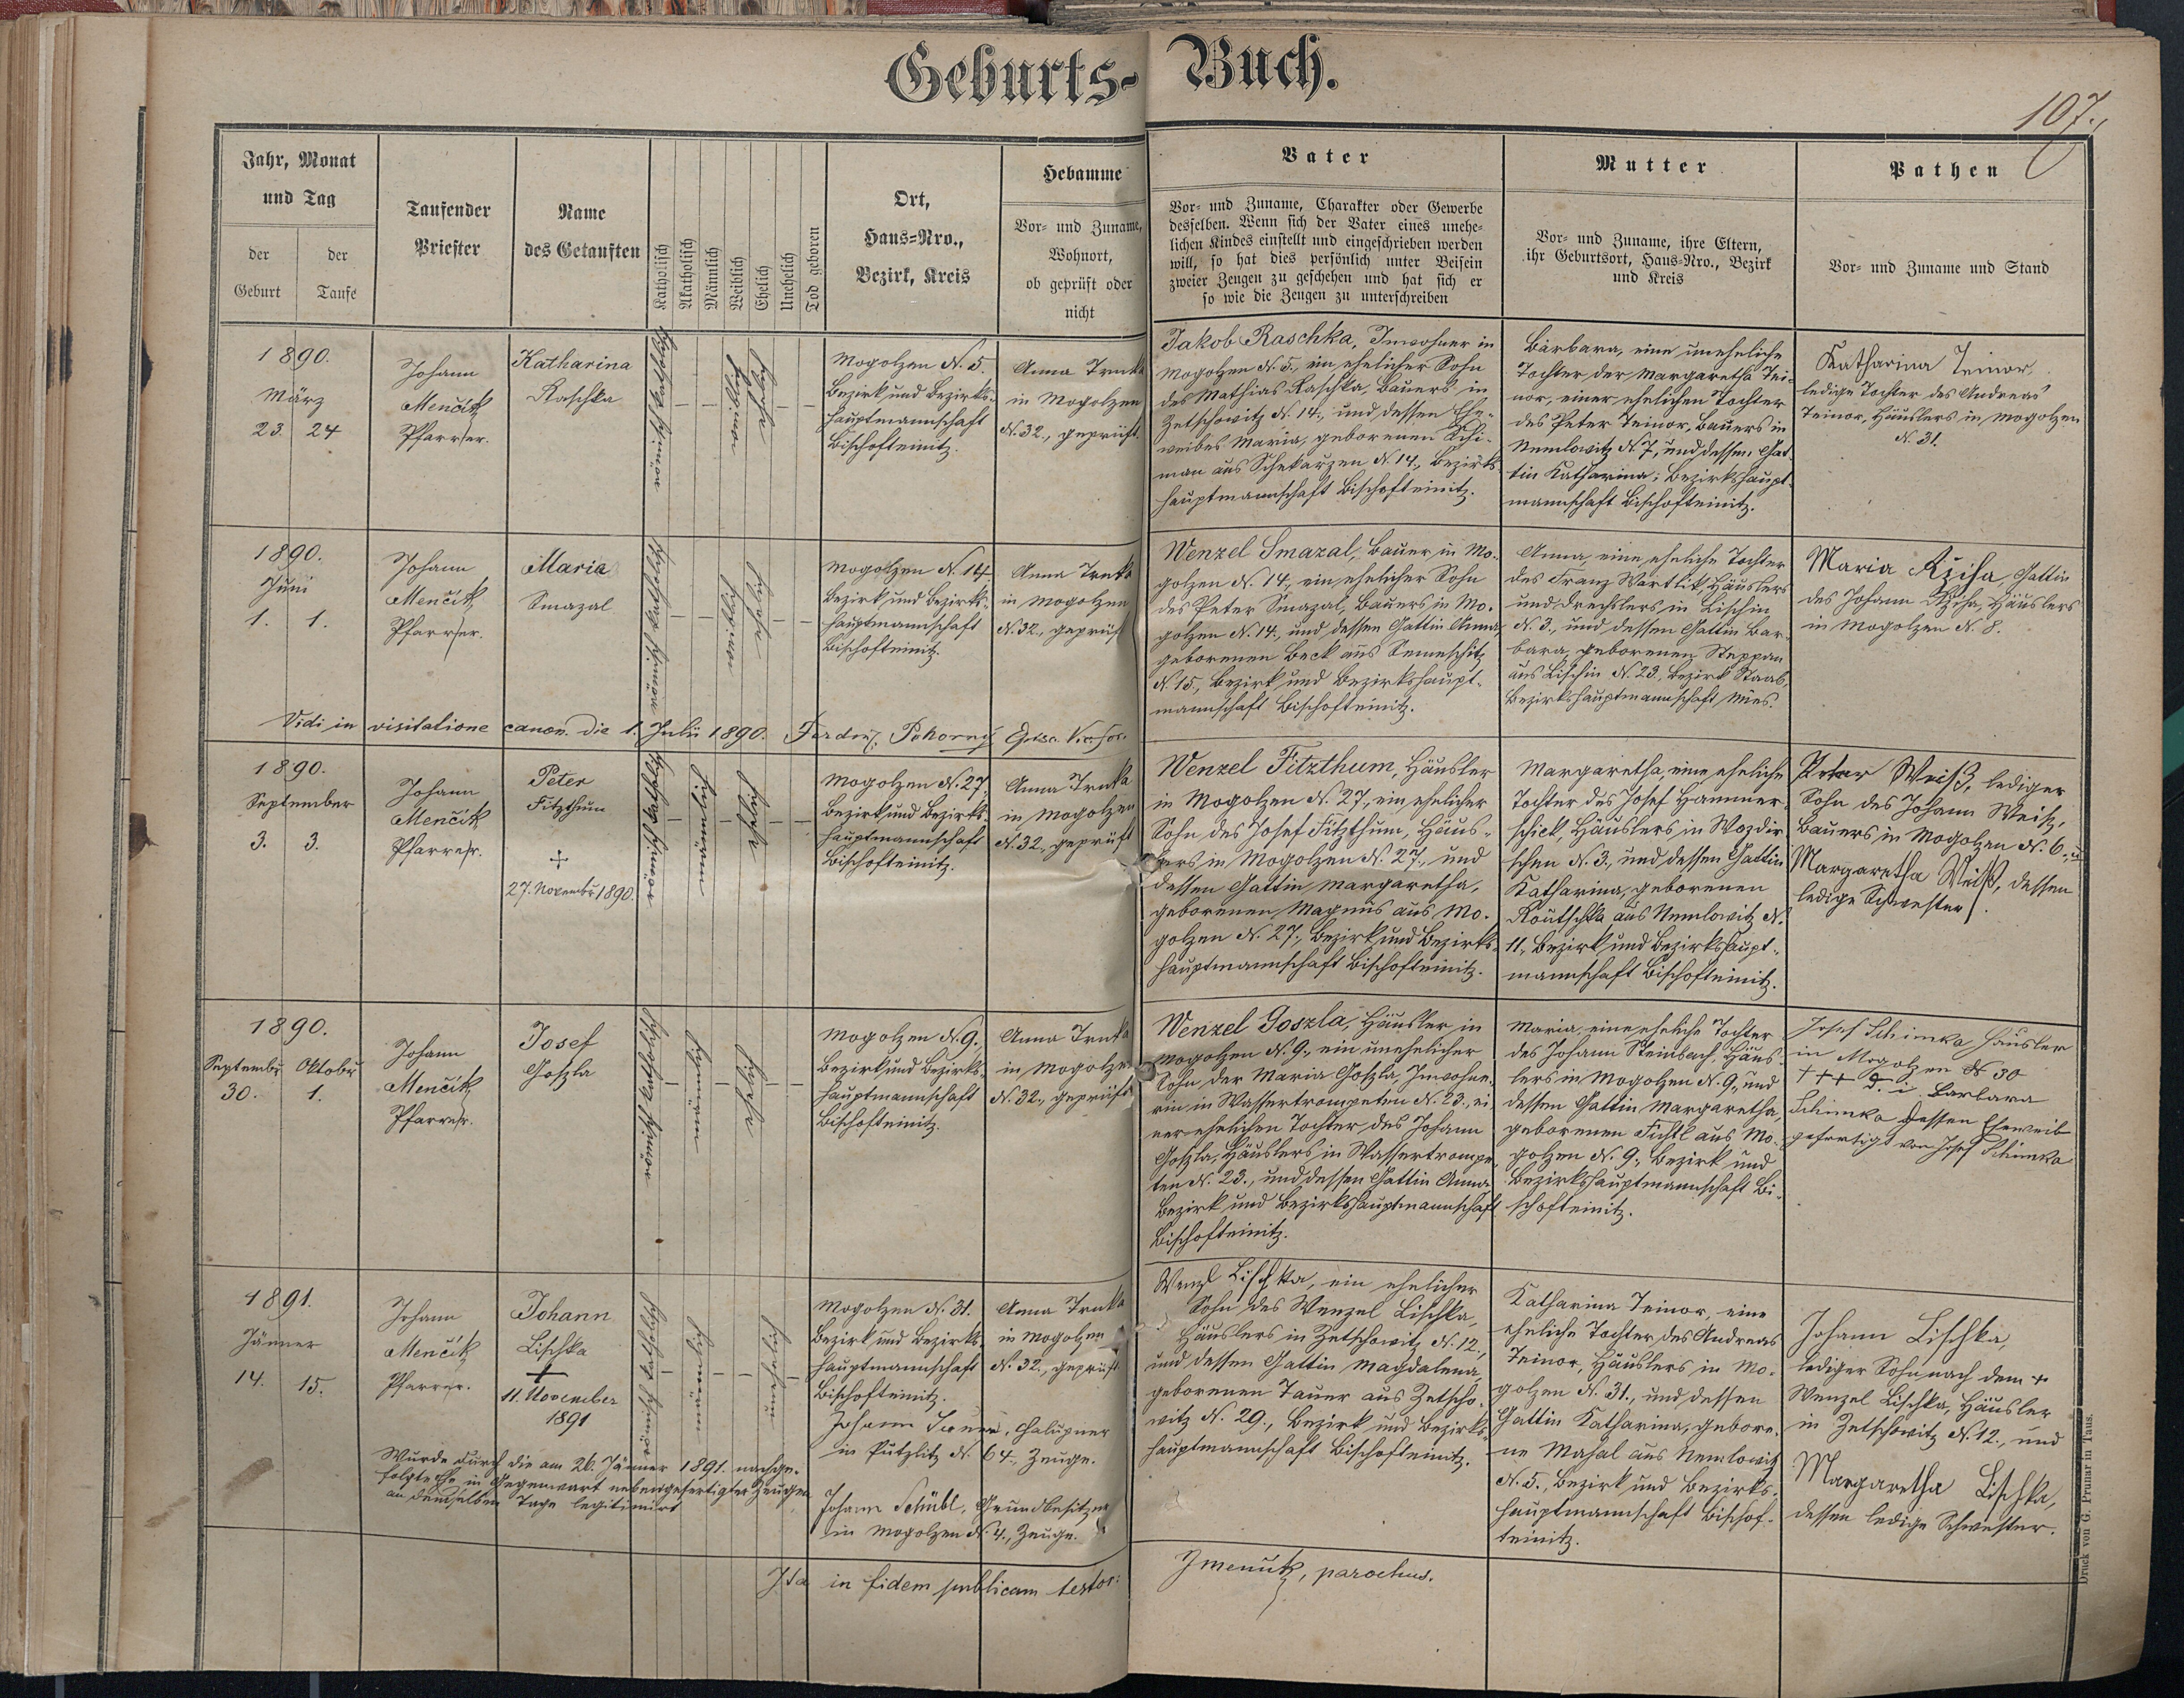 Geburts-Buch.
107.
Jahr, Monat
und Tag
der
Geburt
der
Taufe
Taufender
Priester
Name
des Getauften
Katholisch
Akatholisch
Männlich
Weiblich
Ehelich
Unehelich
Tod geboren
Ort,
Haus-Nro.,
Bezirk, Kreis
Hebamme
Vor- und Zuname,
Wohnort,
ob geprüft oder
nicht
Vater
Vor- und Zuname, Charakter oder Gewerbe
desselben. Wenn sich der Vater eines unehe-
lichen Kindes einstellt und eingeschrieben werden
will, so hat dies persönlich unter Beisein
zweier Zeugen zu geschehen und hat sich er
so wie die Zeugen zu unterschreiben
Mutter
Vor- und Zuname, ihre Eltern,
ihr Geburtsort, Haus-Nro., Bezirk
und Kreis
Pathen
Vor- und Zuname und Stand
1890.
März
23. 24
Johann
Menčik
Pfarrer.
Katharina
Raschka
römisch katholisch
weiblich
ehelich
Mogolzen N. 5.
Bezirk und Bezirks-
hauptmannschaft
Bischofteinitz.
Anna Trnka
in Mogolzen
N. 32., geprüft.
Jakob Raschka, Inwohner in
Mogolzen N. 5., ein ehelicher Sohn
des Mathias Raschka, Bauers in
Zetschowitz N. 14., und dessen Ehe-
weibes Maria, geborenen Schi-
man aus Schekarzen N. 14., Bezirks-
hauptmannschaft Bischofteinitz.
Barbara, eine uneheliche
Tochter der Margaretha Tei-
nor, einer ehelichen Tochter
des Peter Teinor, Bauers in
Nemlowitz N. 7, und dessen Gat-
tin Katharina; Bezirkshaupt-
mannschaft Bischofteinitz.
Katharina Teinor,
ledige Tochter des Andreas
Teinor, Häuslers in Mogolzen
N. 31.
1890.
Juni
1. 1.
Johann
Menčik
Pfarrer.
Maria
Smazal
römisch katholisch
weiblich
ehelich
Mogolzen N. 14.
Bezirk und Bezirks-
hauptmannschaft
Bischofteinitz.
Anna Trnka
in Mogolzen
N. 32., geprüft
Wenzel Smazal, Bauer in Mo-
golzen N. 14., ein ehelicher Sohn
des Peter Smazal, Bauers in Mo-
golzen N. 14., und dessen Gattin Anna,
geborenen Beck aus Semeschitz
N. 15, Bezirk und Bezirkshaupt-
mannschaft Bischofteinitz.
Anna, eine eheliche Tochter
des Franz Wartlik, Häuslers
und Drechslers in Lischin
N. 3., und dessen Gattin Bar-
bara, geborenen Steppan
aus Lischin N. 23., Bezirk Staab,
Bezirkshauptmannschaft Mies.
Maria Řziha, Gattin
des Johann Řziha, Häuslers
in Mogolzen N. 8.
Vidi in visitatione canon. die 1. Julii 1890. Ferdin. Pokorný
1890.
September
3. 3.
Johann
Menčik
Pfarrer.
Peter
Fitzthum
+
27. November 1890.
römisch katholisch
männlich
ehelich
Mogolzen N. 27.,
Bezirk und Bezirks-
hauptmannschaft
Bischofteinitz.
Anna Trnka
in Mogolzen
N. 32., geprüft
Wenzel Fitzthum, Häusler
in Mogolzen N. 27., ein ehelicher
Sohn des Josef Fitzthum, Häus-
lers in Mogolzen N. 27., und
dessen Gattin Margaretha,
geborenen Magnus aus Mo-
golzen N. 27., Bezirk und Bezirks-
hauptmannschaft Bischofteinitz.
Margaretha, eine eheliche
Tochter des Josef Hammer-
schick, Häuslers in Wozdir-
schen N. 3., und dessen Gattin
Katharina, geborenen
Koutschka aus Nemlowitz N.
11., Bezirk und Bezirkshaupt-
mannschaft Bischofteinitz.
Peter Weiß, lediger
Sohn des Johann Weiß,
Bauers in Mogolzen N. 6., u.
Margaretha Weiß, dessen
ledige Schwester.
1890.
September Oktober
30. 1.
Johann
Menčik
Pfarrer.
Josef
Goszla
römisch katholisch
männlich
ehelich
Mogolzen N. 9.,
Bezirk und Bezirks-
hauptmannschaft
Bischofteinitz.
Anna Trnka
in Mogolzen
N. 32., geprüft
Wenzel Goszla, Häusler in
Mogolzen N. 9., ein unehelicher
Sohn der Maria Goszla, Inwohne-
rin in Wassertrompeten N. 23., ei-
ner ehelichen Tochter des Johann
Goszla, Häuslers in Wassertrompe-
ten N. 23., und dessen Gattin Anna,
Bezirk und Bezirkshauptmannschaft
Bischofteinitz.
Maria, eine eheliche Tochter
des Johann Steinbach, Häus-
lers in Mogolzen N. 9., und
dessen Gattin Margaretha,
geborenen Fichtl aus Mo-
golzen N. 9., Bezirk und
Bezirkshauptmannschaft Bi-
schofteinitz.
Josef Schimka Häusler
in Mogolzen N 30
+++ d. i. Barbara
Schimka dessen Eheweib
gefertigt von Josef Schimka
1891.
Jänner
14. 15.
Johann
Menčik
Pfarrer.
Johann
Lischka
+
11. November
1891
römisch katholisch
männlich
unehelich
Mogolzen N. 31.
Bezirk und Bezirks-
hauptmannschaft
Bischofteinitz.
Anna Trnka
in Mogolzen
N. 32., geprüft
Johann, Chalupner
in Putzlitz N. 64., Zeuge.
Johann Schübl, Grundbesitzer
in Mogolzen N. 4., Zeuge.
Wurde durch die am 26. Jänner 1891. nachge-
folgte Ehe in Gegenwart nebengefertigter Zeugen
an demselben Tage legitimirt
Wenzl Lischka, ein ehelicher
Sohn des Wenzel Lischka,
Häuslers in Zetschowitz N. 12.,
und dessen Gattin Magdalena,
geborenen Tauer aus Zetscho-
witz N. 29., Bezirk und Bezirks-
hauptmannschaft Bischofteinitz.
Katharina Teinor, eine
eheliche Tochter des Andreas
Teinor, Häuslers in Mo-
golzen N. 31., und dessen
Gattin Katharina, gebore-
ne Mahal aus Nemlowitz
N. 5., Bezirk und Bezirks-
hauptmannschaft Bischof-
teinitz.
Johann Lischka,
lediger Sohn nach dem +
Wenzel Lischka, Häusler
in Zetschowitz N. 12., und
Margaretha Lischka,
dessen ledige Schwester.
Ita in fidem publicam testor:
parochus.
Druck von G. Prunar in Taus.